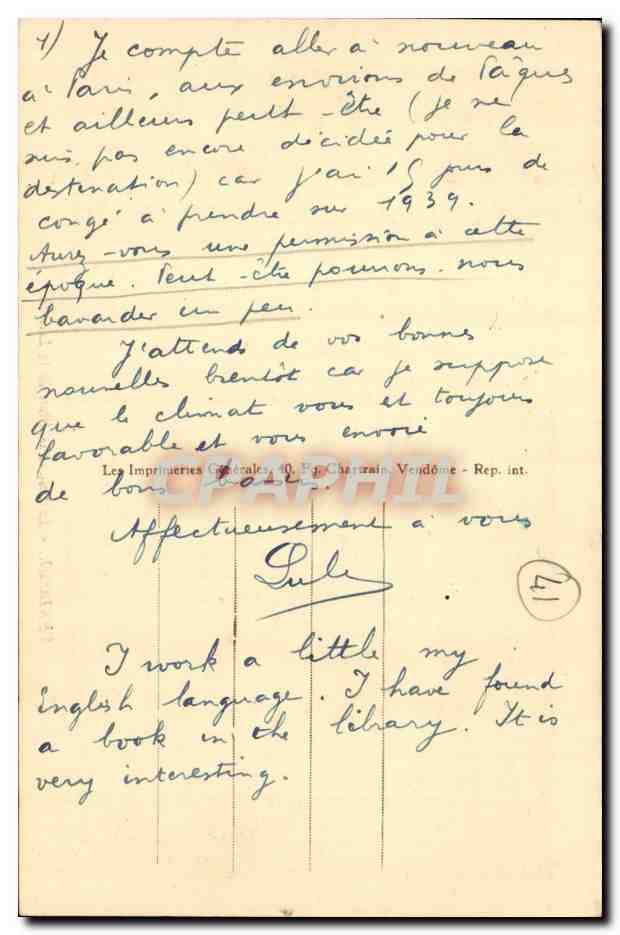 4) Je compte aller à nouveau
à Paris, aux environs de Pâques
et ailleurs peut-être (je ne
suis pas encore décidée pour la
destination) car j'ai 15 jours de
congé à prendre sur 1939.
Aurez-vous une permission à cette
époque. Peut-être pourrons-nous
bavarder un peu.
J'attends de vos bonnes
nouvelles bientôt car je suppose
que le climat vous est toujours
favorable et vous envoie
Les Imprimeries Générales, 40, Fg. Chartrain, Vendôme - Rep. int.
CPAPHIL
de bons baisers.
Affectueusement à vous
17
I work a little my
English language. I have found
a book in the library. It is
very interesting.